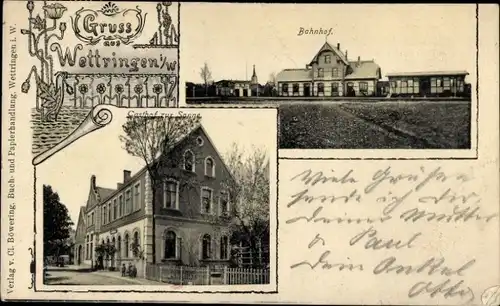 Gruss
aus
Wettringen i/W
Bahnhof.
Gasthof zur Sonne
Verlag v. Cl. Böwering, Buch- und Papierhandlung, Wettringen i. W.
Viele Grüße
sende ich dir
deiner Mutter
& Paul
dein Onkel
Otto